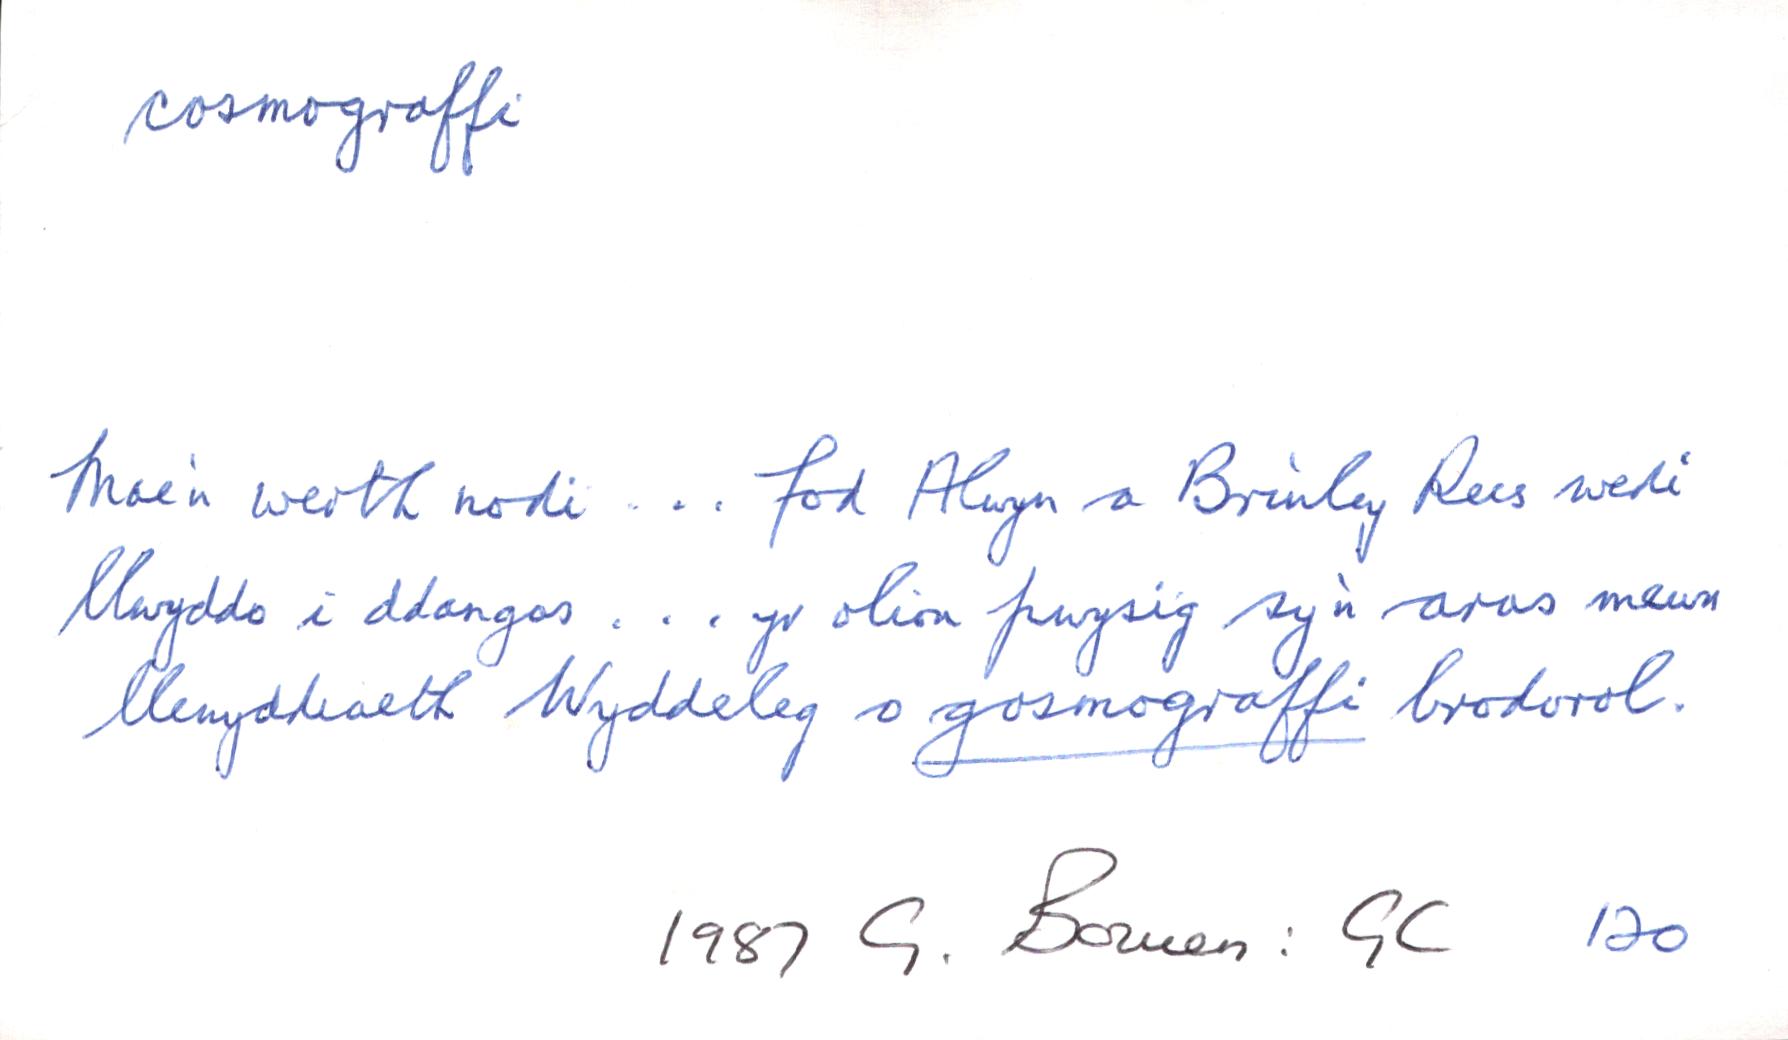 cosmograffi
Mae'n werth nodi . . . fod Alwyn a Brinley Rees wedi
llwyddo i ddangos . . . yr olion pwysig sy'n aros mewn
llenyddiaeth Wyddeleg o gosmograffi brodorol.
1987 G. Bowen : GC 120